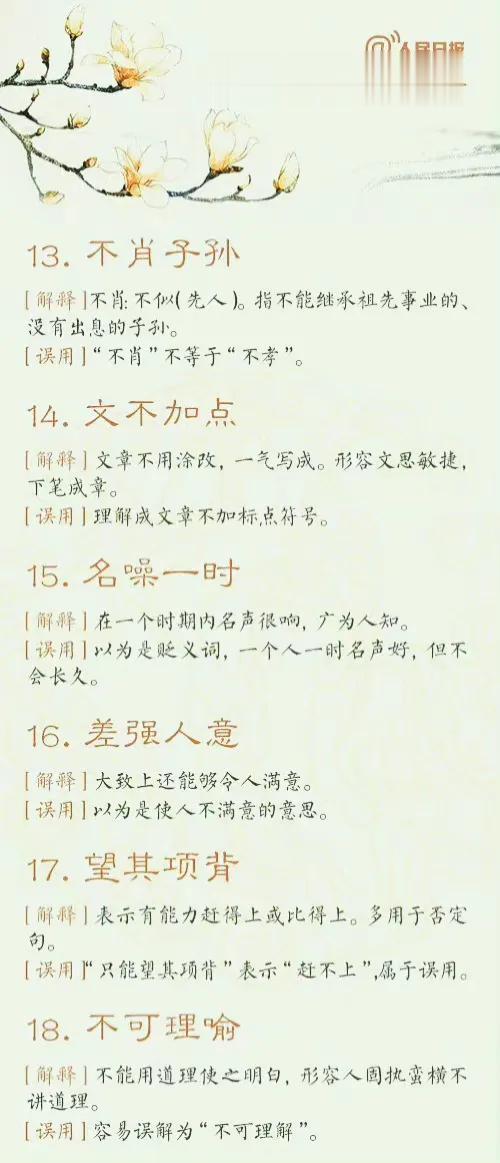 人民日报
13. 不肖子孙
[解释]不肖:不似(先人)。指不能继承祖先事业的、
没有出息的子孙。
[误用]“不肖”不等于“不孝”。
14. 文不加点
[解释]文章不用涂改，一气写成。形容文思敏捷，
下笔成章。
[误用]理解成文章不加标点符号。
15. 名噪一时
[解释]在一个时期内名声很响，广为人知。
[误用]以为是贬义词，一个人一时名声好，但不
会长久。
16. 差强人意
[解释]大致上还能够令人满意。
[误用]以为是使人不满意的意思。
17. 望其项背
[解释]表示有能力赶得上或比得上。多用于否定
句。
[误用]“只能望其项背”表示“赶不上”,属于误用。
18. 不可理喻
[解释]不能用道理使之明白，形容人固执蛮横不
讲道理。
[误用]容易误解为“不可理解”。